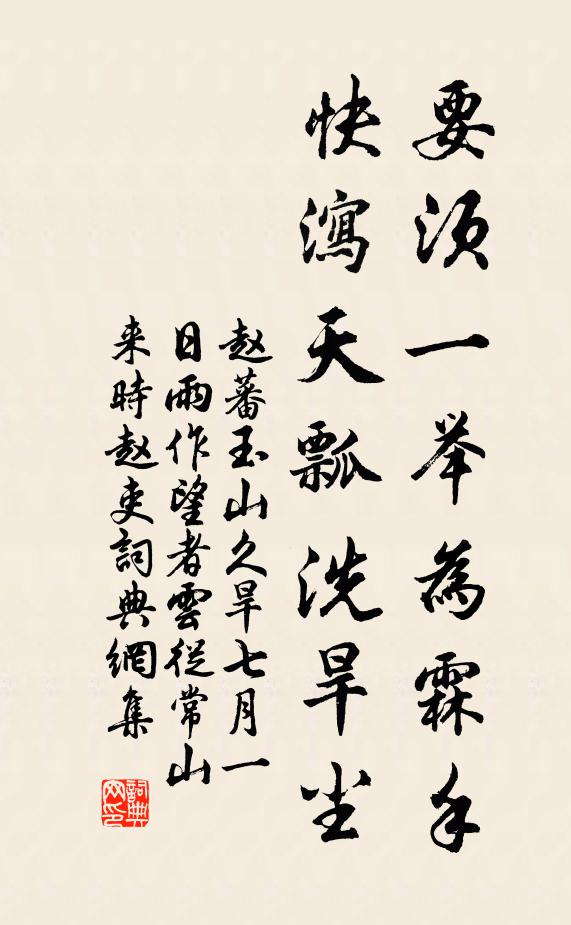 要须一举為霖手
快瀉天瓢洗旱尘
赵蕃玉山久旱七月一
日雨作望者雲従常山
来時赵吏詞典網集
詞典网印